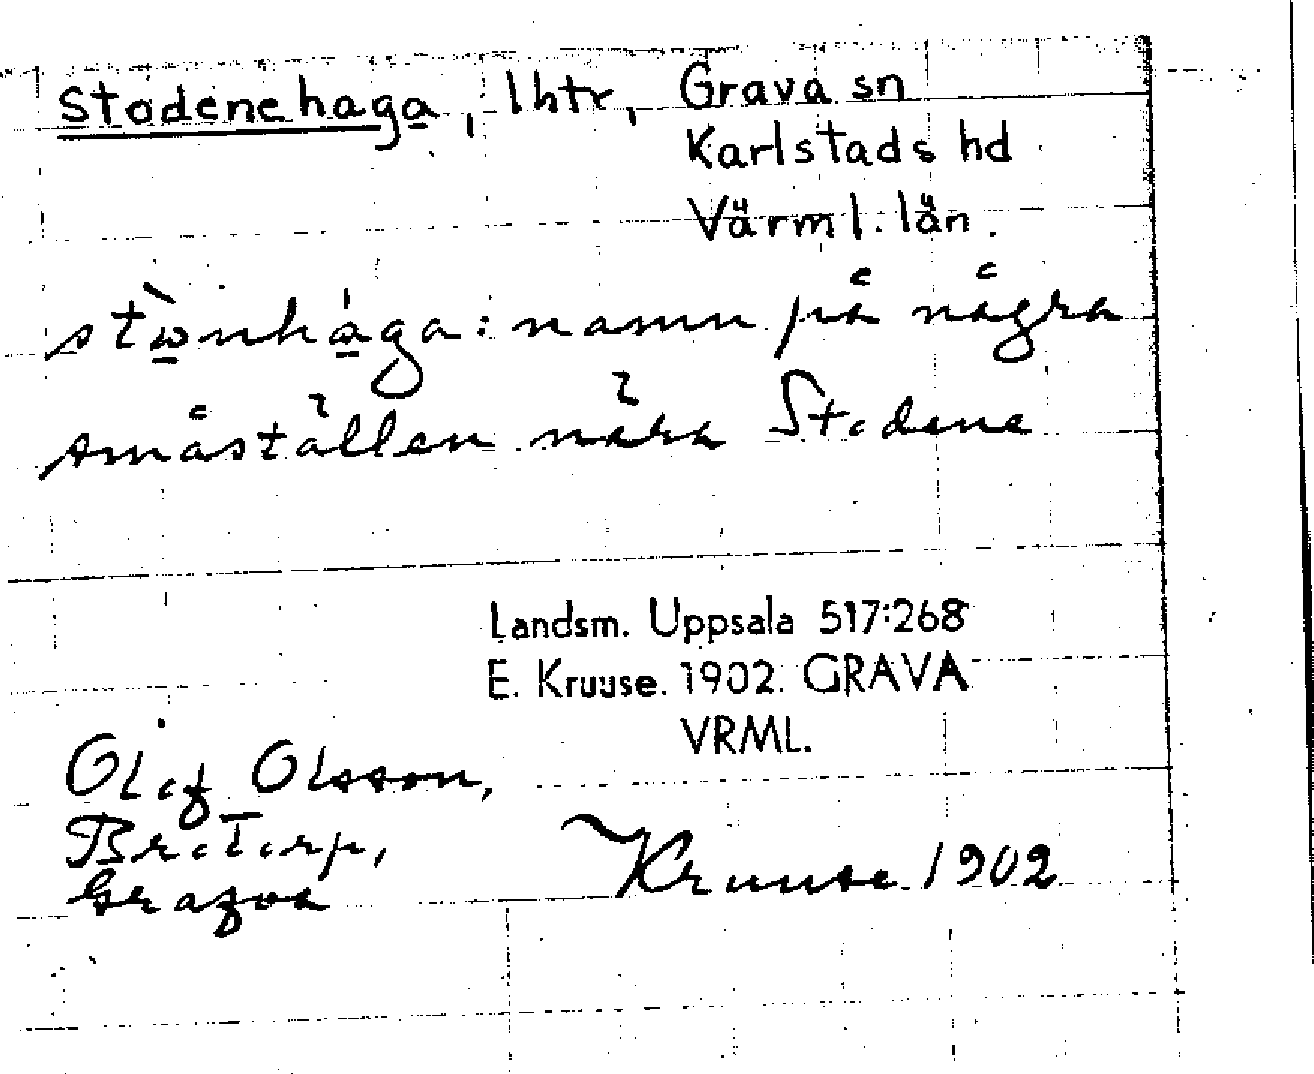 Stodenehaga, lhtr, Grava sn
Karlstads hd
Värml. län.
stònhága: namn på några
småställen nära Stodene
Landsm. Uppsala 517:268
E. Kruuse. 1902. GRAVA
VRML.
Olof Olsson,
Brotorp,
Grafva
Kruuse 1902